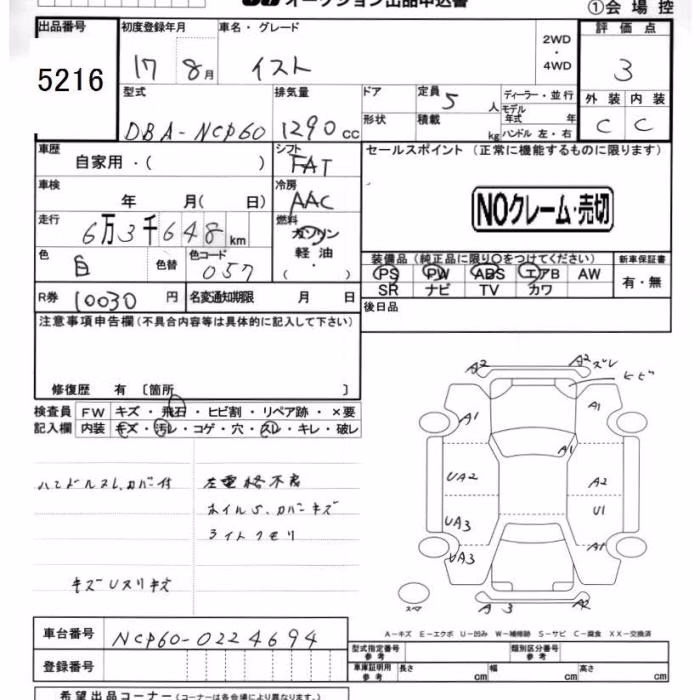 オークション出品申込書
①会場控
出品番号 初度登録年月 車名・グレード 2WD・4WD 評価点
5216 17 8月 イスト 3
型式 排気量 ドア 定員 5 人 ディーラー・並行 外装 内装
DBA-NCP60 1290 cc 形状 積載 kg モデル年式 年 ハンドル 左・右 C C
車歴 自家用・( ) シフト FAT セールスポイント (正常に機能するものに限ります)
車検 年 月( 日) 冷房 AAC
NOクレーム・売切
走行 6万3千648km 燃料 ガソリン 軽油・( )
色 白 色替 色コード 057 装備品 (純正品に限り○をつけてください) 新車保証書
PS PW ABS エアB AW 有・無
SR ナビ TV カワ
R券 10030 円 名変通知期限 月 日 後日品
注意事項申告欄 (不具合内容等は具体的に記入して下さい)
修復歴 有 〔箇所 〕
検査員 FW キズ・飛石・ヒビ割・リペア跡・×要
記入欄 内装 キズ・汚レ・コゲ・穴・スレ・キレ・破レ
ハンドルスレ、カバー付 左電格不良
ホイルS、カバーキズ
ライトクモリ
キズUスリキズ
A2 A2ズレ
ヒビ
A1 A1
A1
UA2 A2
UA3 U1
UA3 A1
スペア A3 A2
車台番号 NCP60-0224694
A-キズ E-エクボ U-凹み W-補修跡 S-サビ C-腐食 XX-交換済
登録番号 型式指定番号 参考 類別区分番号 参考
車庫証明用 参考 長さ cm 幅 cm 高さ cm
希望出品コーナー (コーナーは各会場により異なります。)